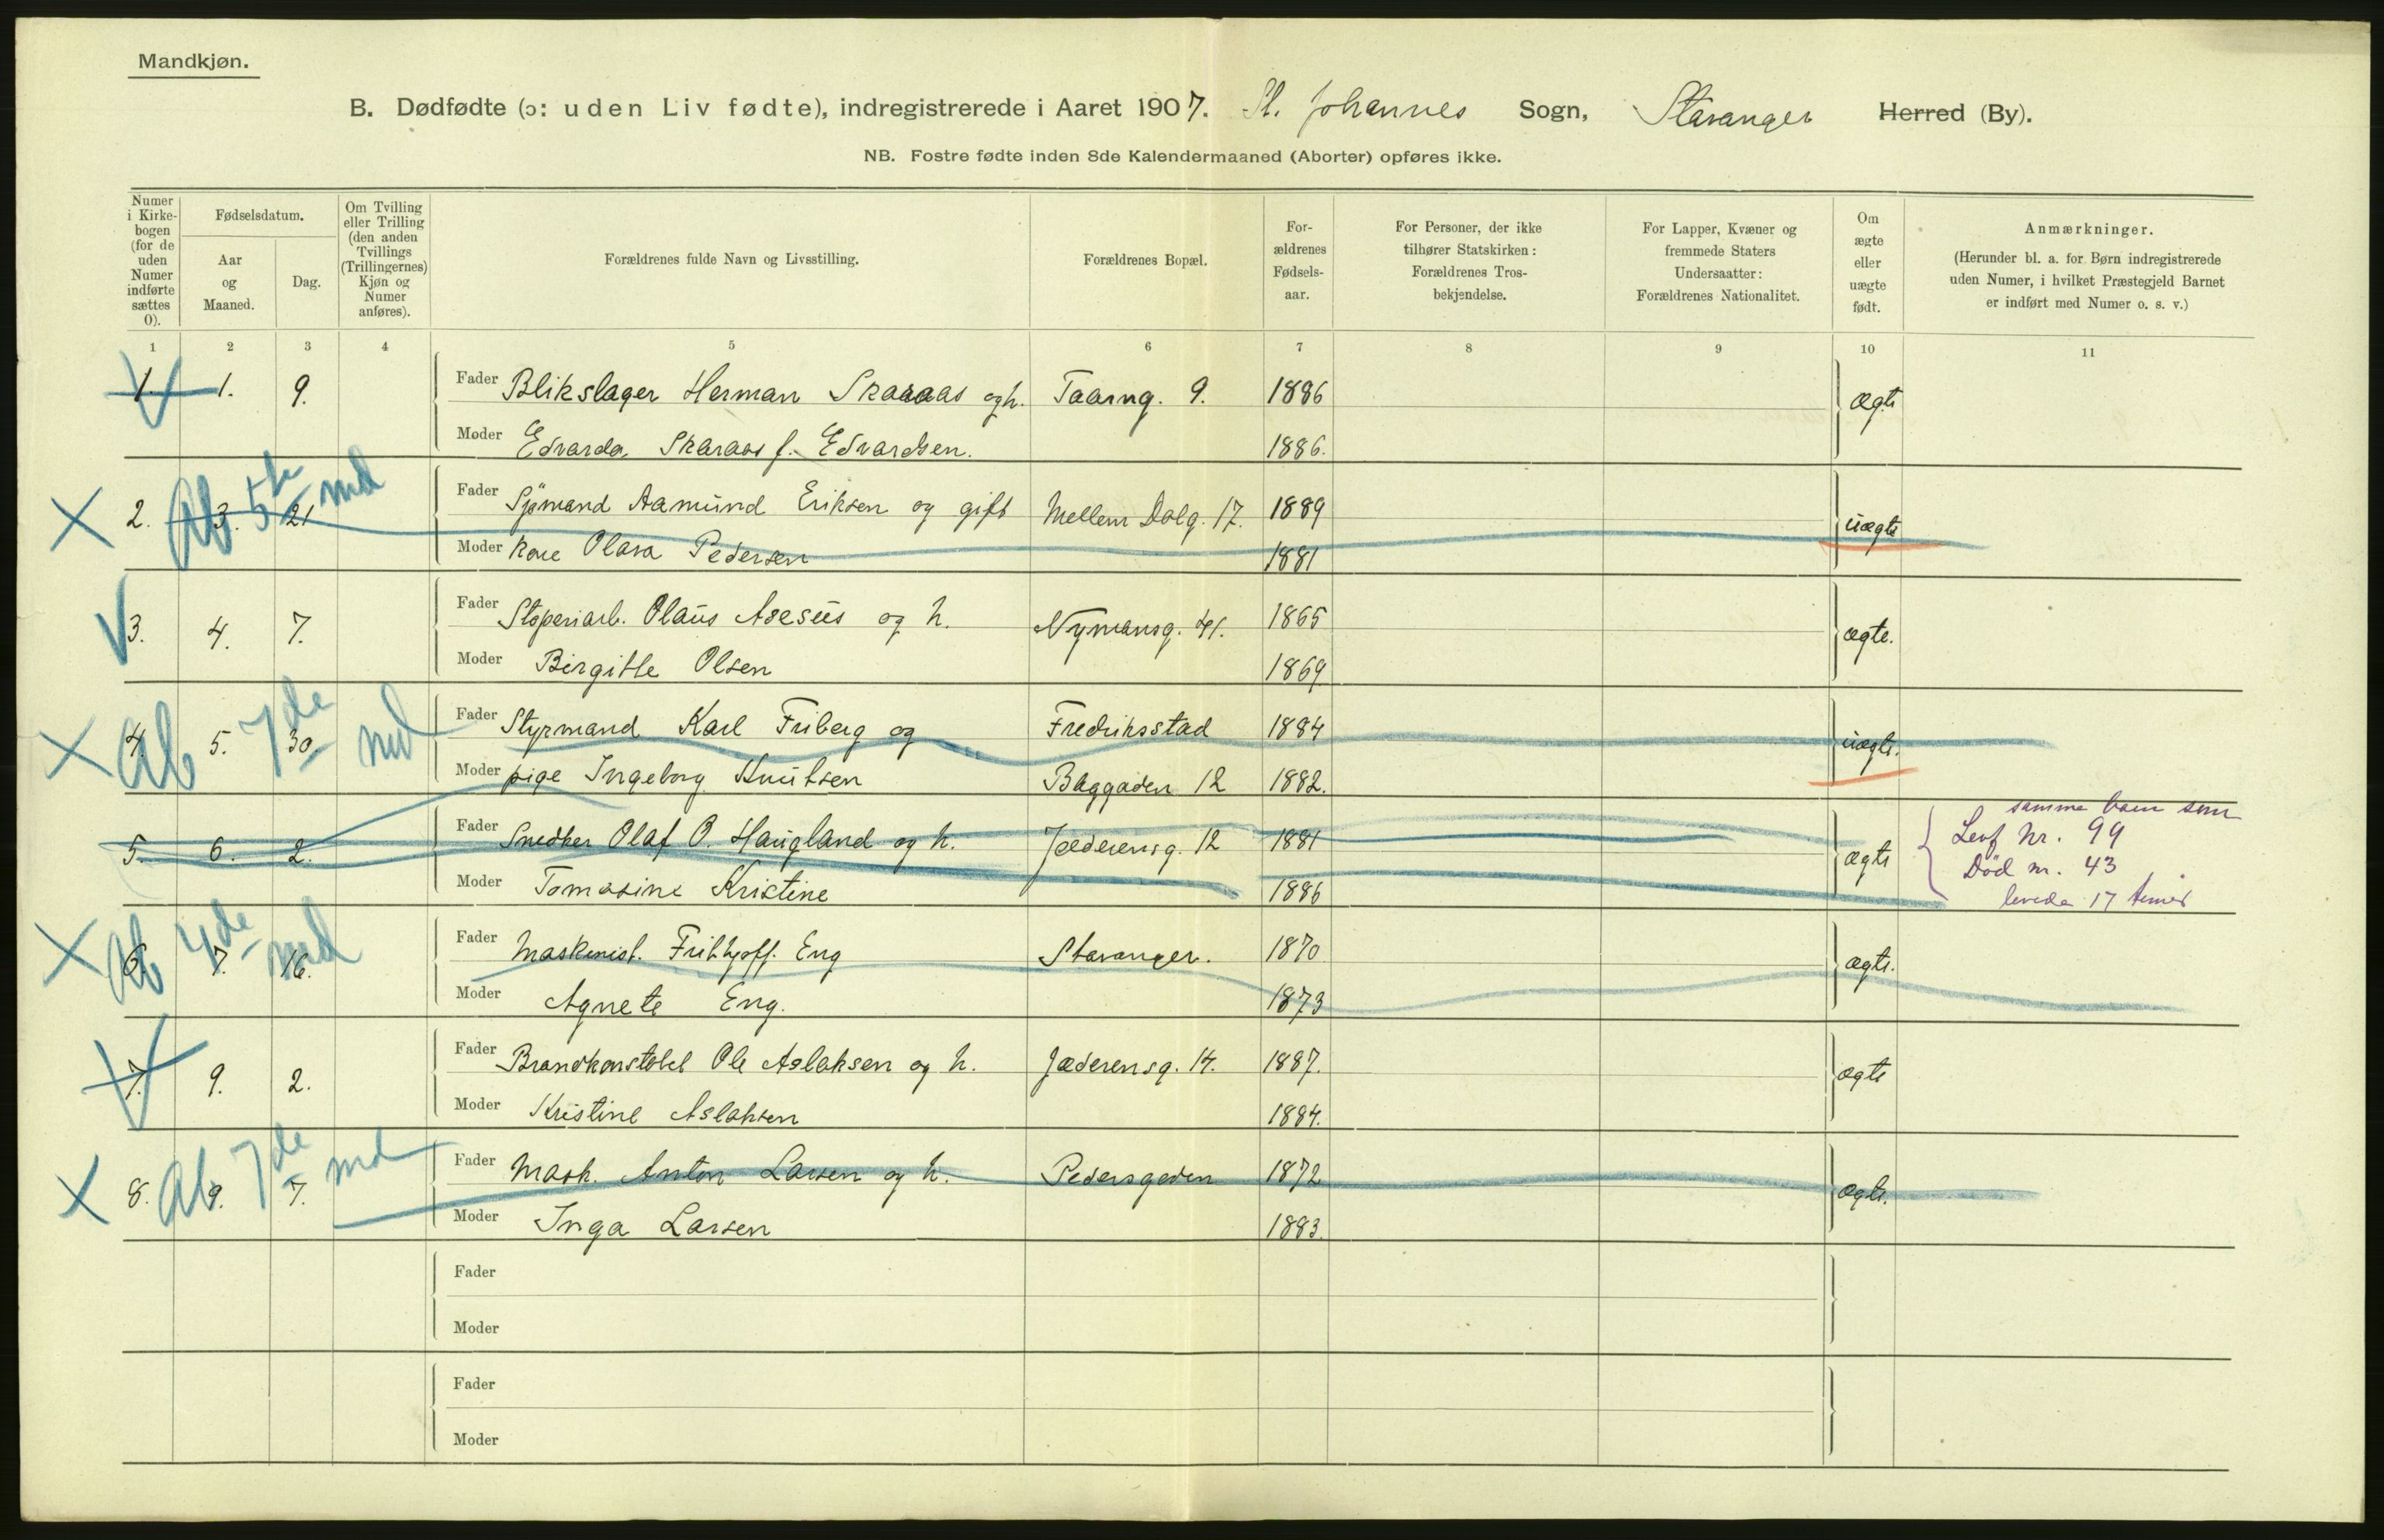 Mandkjøn.
B. Dødfødte (ɔ: uden Liv fødte), indregistrerede i Aaret 1907. St. Johannes Sogn, Stavanger Herred (By).
NB. Fostre fødte inden 8de Kalendermaaned (Aborter) opføres ikke.
Numer i Kirkebogen (for de uden Numer indførte sættes 0).
Fødselsdatum.
Aar og Maaned.
Dag.
Om Tvilling eller Trilling (den anden Tvillings (Trillingernes) Kjøn og Numer anføres).
Forældrenes fulde Navn og Livsstilling.
Forældrenes Bopæl.
For-ældrenes Fødsels-aar.
For Personer, der ikke tilhører Statskirken: Forældrenes Tros-bekjendelse.
For Lapper, Kvæner og fremmede Staters Undersaatter: Forældrenes Nationalitet.
Om ægte eller uægte født.
Anmærkninger.
(Herunder bl. a. for Børn indregistrerede uden Numer, i hvilket Præstegjeld Barnet er indført med Numer o. s. v.)
1 2 3 4 5 6 7 8 9 10 11
1. 1. 9. Fader Blikslager Herman Skaraas og h. Taarng. 9. 1886 ægte
Moder Edvarda Skaraas f. Edvardsen. 1886.
2. 3. 21 Ab 5te md Fader Sjømand Aamund Eriksen og gift Mellem Dalg. 17. 1889 uægte
Moder kone Olava Pedersen 1881
3. 4. 7. Fader Støperiarb. Olaus Aseseus og h. Nymansg. 41. 1865 ægte.
Moder Birgitte Olsen 1869
4. 5. 30. Ab 7de md Fader Styrmand Karl Friberg og Fredriksstad 1884 uægte.
Moder pige Ingeborg Knutsen Baggaden 12 1882.
5. 6. 2. Fader Snedker Olaf O. Haugland og h. Jæderensg. 12 1881 ægte
Moder Tomasine Kristine 1886
samme barn som
Levf Nr. 99
Död nr. 43
levede 17 timer
6. 7. 16. Ab 4de md Fader Maskinist. Frithjoff. Eng Stavanger. 1870 ægte.
Moder Agnete Eng. 1873
7. 9. 2. Fader Brandkonstabel Ole Aslaksen og h. Jæderensg. 14. 1887. ægte
Moder Kristine Aslaksen 1884.
8. 9. 7. Ab 7de md Fader Mask. Anton Larsen og h. Pedersgaden 1872 ægte.
Moder Inga Larsen 1883.
Fader
Moder
Fader
Moder